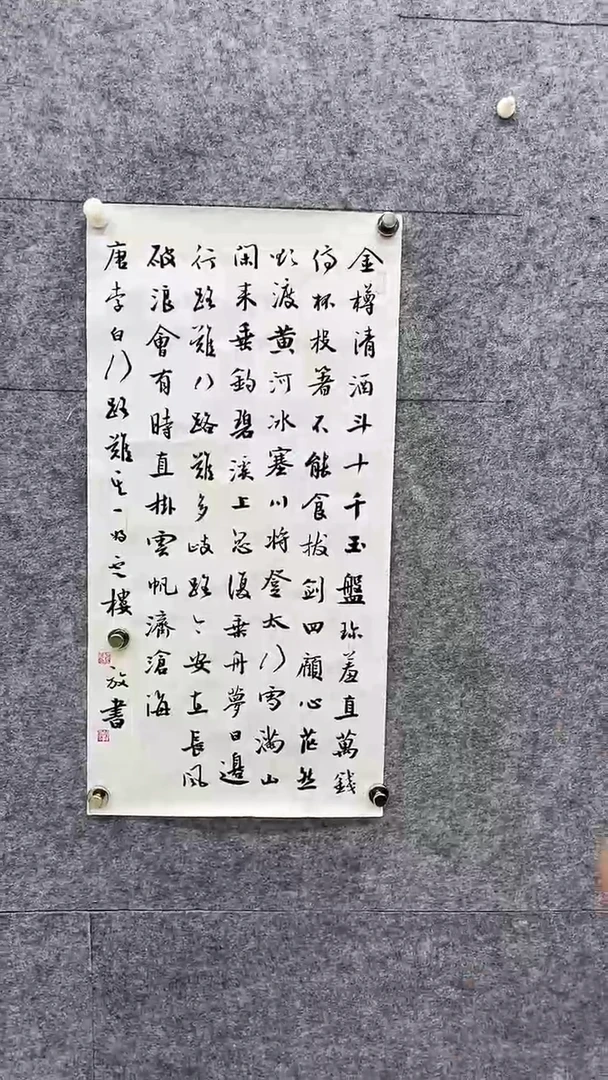 金樽清酒斗十千玉盤珎羞直萬錢
停杯投箸不能食拔剑四顧心茫然
欲渡黄河冰塞川将登太行雪滿山
閑来垂釣碧溪上忽復乗舟夢日邊
行路難行路難多歧路今安在長風
破浪會有時直掛雲帆濟滄海
唐李白行路難其一樓放書